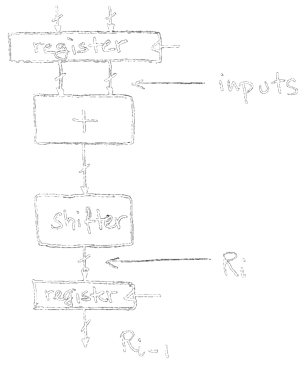 register
inputs
+
shifter
Ri
register
Ri-1